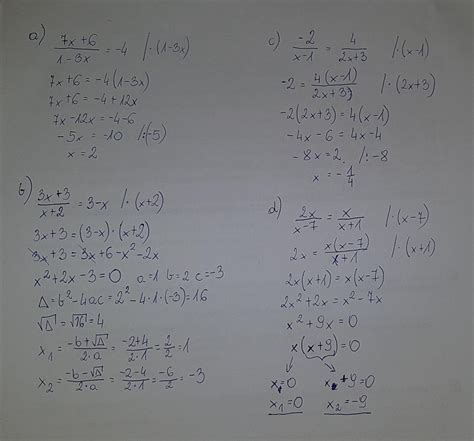 a) (7x+6)/(1-3x) = -4 /·(1-3x)
7x+6 = -4(1-3x)
7x+6 = -4+12x
7x-12x = -4-6
-5x = -10 /:(-5)
x = 2
b) (3x+3)/(x+2) = 3-x /·(x+2)
3x+3 = (3-x)·(x+2)
3x+3 = 3x+6-x²-2x
x²+2x-3=0 a=1 b=2 c=-3
Δ=b²-4ac=2²-4·1·(-3)=16
√Δ=√16=4
x₁ = (-b+√Δ)/(2·a) = (-2+4)/(2·1) = 2/2 = 1
x₂ = (-b-√Δ)/(2·a) = (-2-4)/(2·1) = -6/2 = -3
c) -2/(x-1) = 4/(2x+3) /·(x-1)
-2 = 4(x-1)/(2x+3) /·(2x+3)
-2(2x+3) = 4(x-1)
-4x-6 = 4x-4
-8x = 2 /:-8
x = -1/4
d) 2x/(x-7) = x/(x+1) /·(x-7)
2x = x(x-7)/(x+1) /·(x+1)
2x(x+1) = x(x-7)
2x²+2x = x²-7x
x²+9x = 0
x(x+9) = 0
x=0 x+9=0
x₁=0 x₂=-9